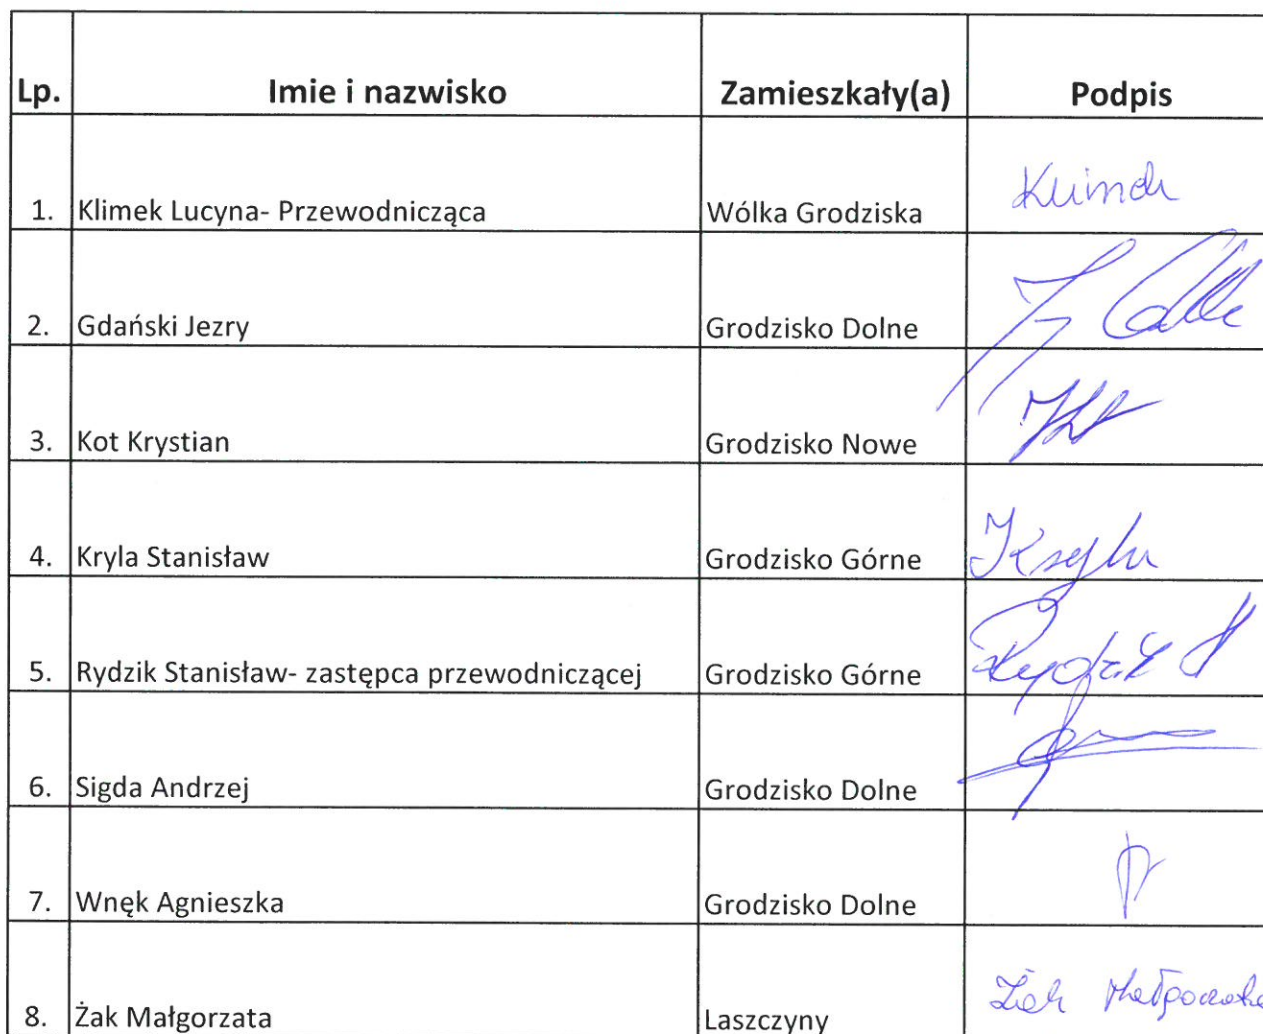 Lp. Imie i nazwisko Zamieszkały(a) Podpis
1. Klimek Lucyna- Przewodnicząca Wólka Grodziska Klimek
2. Gdański Jezry Grodzisko Dolne
3. Kot Krystian Grodzisko Nowe
4. Kryla Stanisław Grodzisko Górne
5. Rydzik Stanisław- zastępca przewodniczącej Grodzisko Górne Rydzik S
6. Sigda Andrzej Grodzisko Dolne
7. Wnęk Agnieszka Grodzisko Dolne
8. Żak Małgorzata Laszczyny Żak Małgorzata